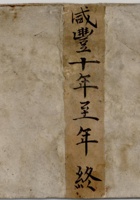 咸豐十年至年終